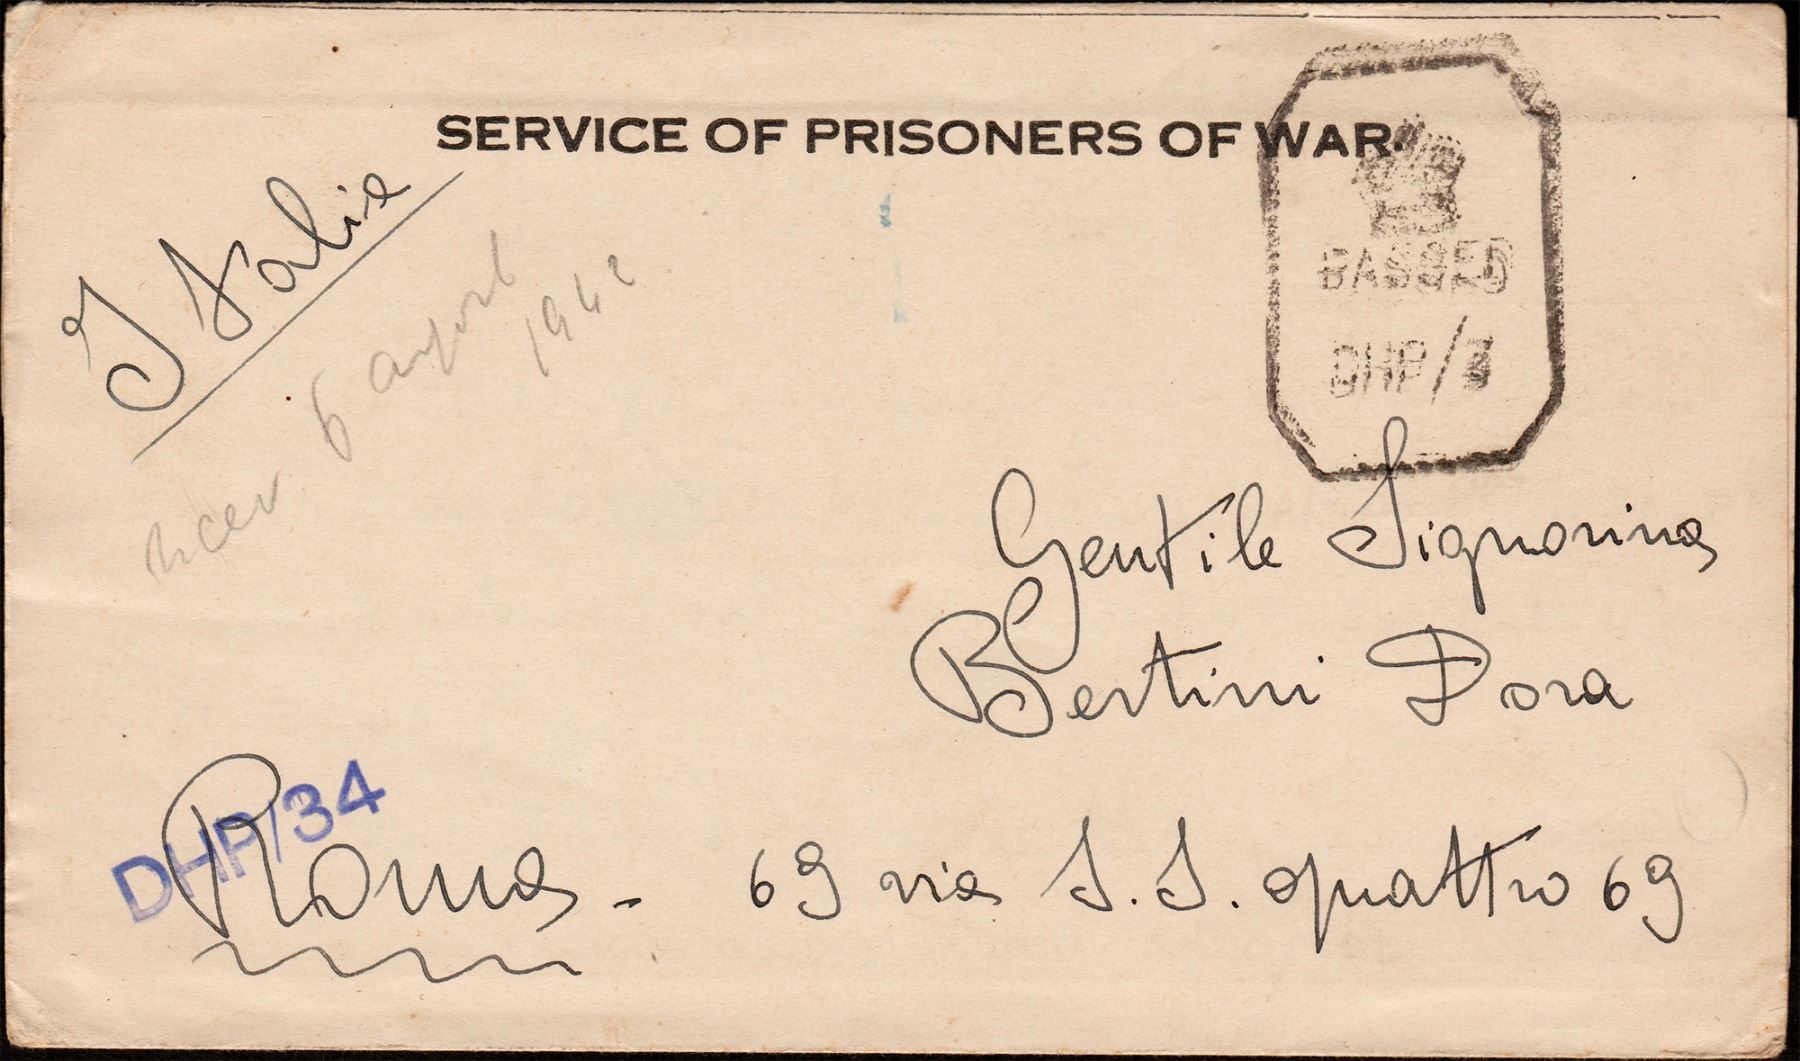 SERVICE OF PRISONERS OF WAR.
Italie
6
1942
PASSED
DHP/3
Gentile Signorina
Bertini Dora
DHP/34
Roma - 69 via S.S. quattro 69